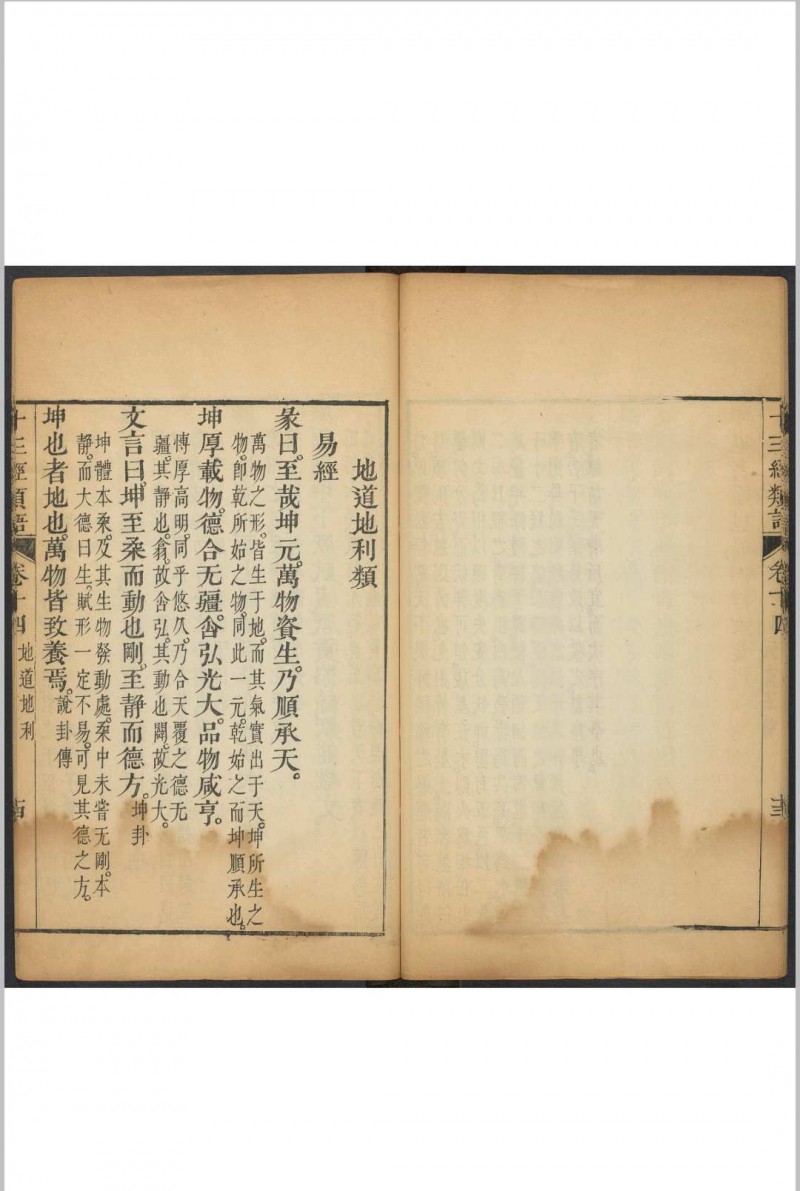 十三經類語
卷十四
地道地利類
易經
彖曰。至哉坤元。萬物資生。乃順承天。
萬物之形。皆生于地。而其氣實出于天。坤所生之
物。卽乾所始之物。同此一元。乾始之而坤順承也。
坤厚載物。德合无疆。含弘光大。品物咸亨。
慱厚高明。同乎悠久。乃合天覆之德无
疆。其靜也。翕。故含弘。其動也闢。故光大。
文言曰。坤至柔而動也剛。至靜而德方。坤卦
坤體本柔。及其生物發動處。柔中未嘗无剛。本
靜。而大德曰生。賦形一定不易。可見其德之方。
坤也者地也。萬物皆致養焉。說卦傳
十三經類語
卷十四
地道地利